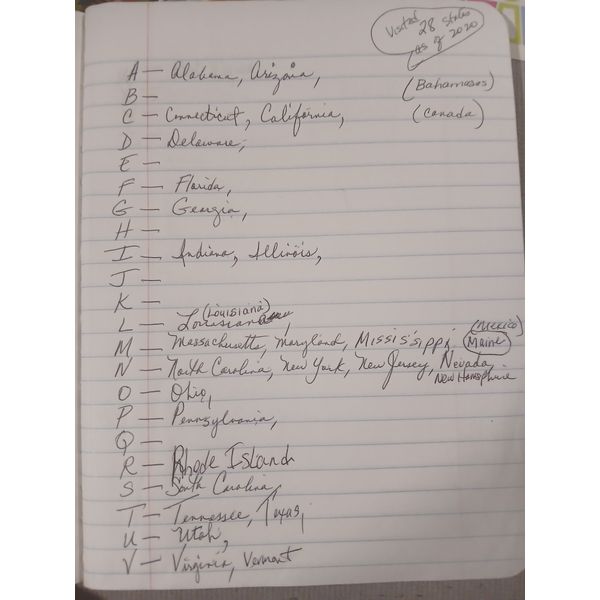 Visited
28 states
as of 2020
A — Alabama, Arizona,
B — (Bahamasas)
C — Connecticut, California, (Canada)
D — Delaware,
E —
F — Florida,
G — Georgia,
H —
I — Indiana, Illinois,
J —
K —
(Louisiana)
L — Louisiana
(Mexico)
M — Massachusetts, Maryland, Mississippi Maine
N — North Carolina, New York, New Jersey, Nevada,
New Hampshire
O — Ohio,
P — Pennsylvania,
Q —
R — Rhode Island
S — South Carolina,
T — Tennessee, Texas,
U — Utah,
V — Virginia, Vermont